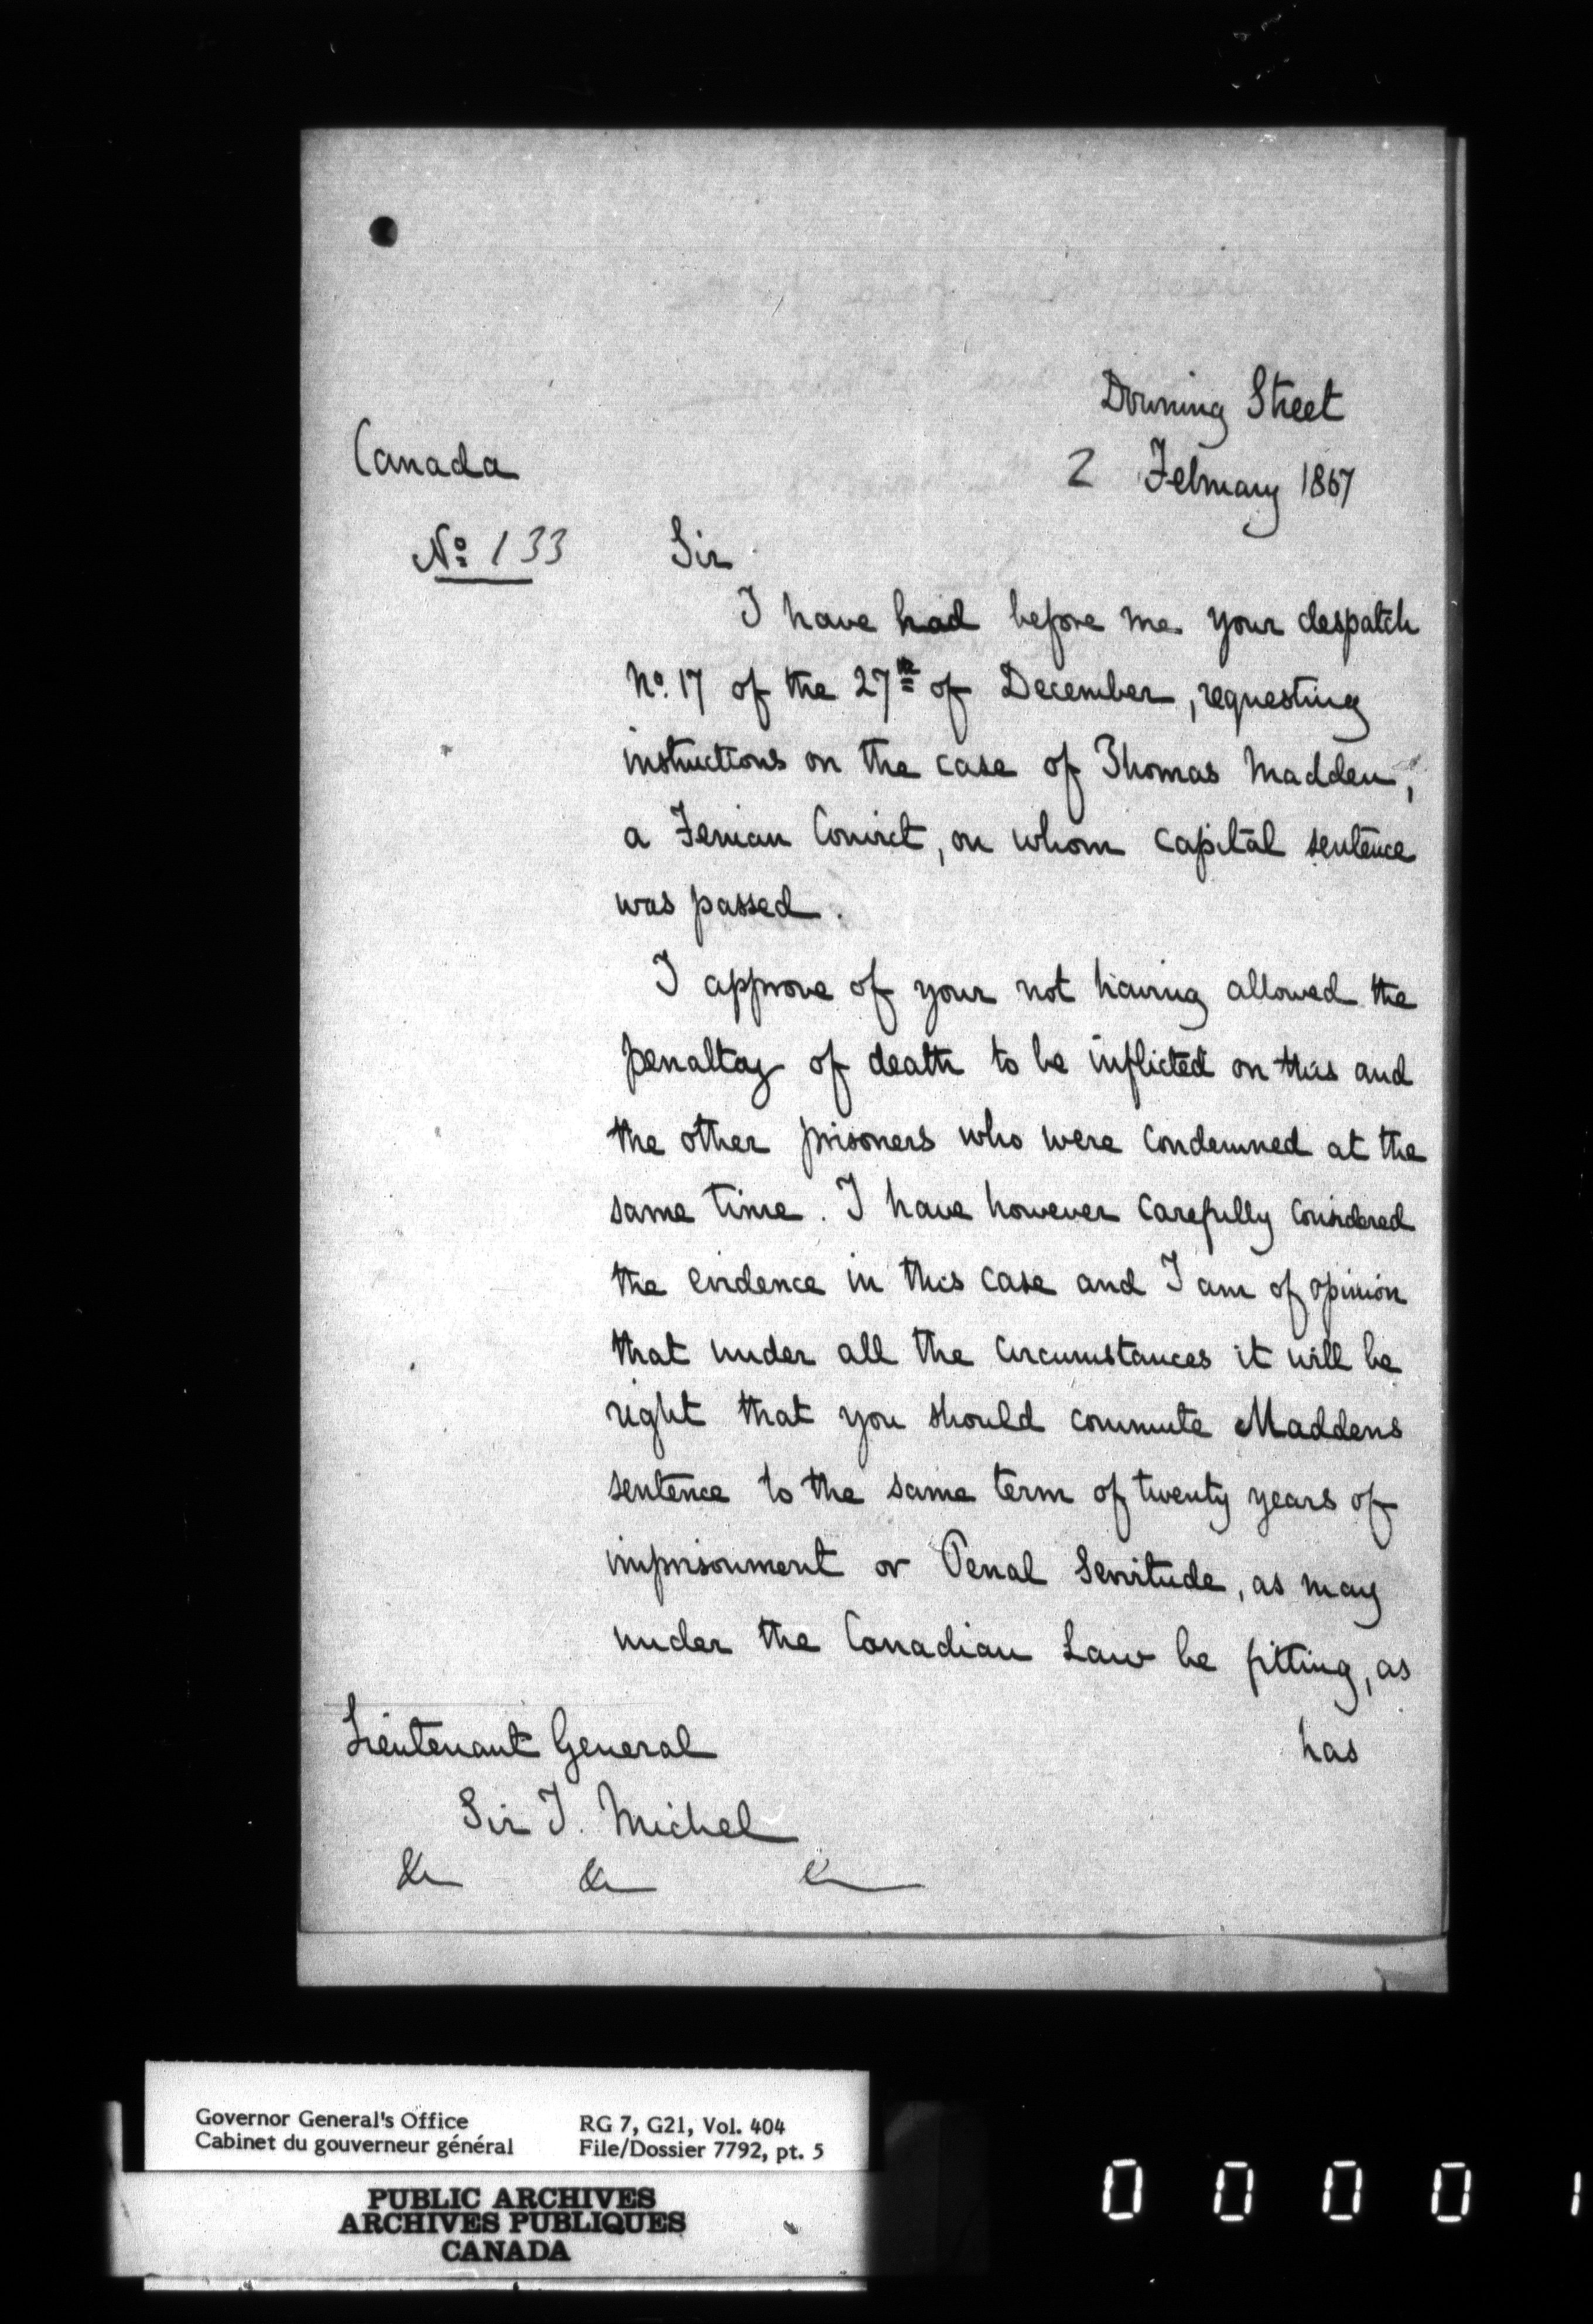 Downing Street
Canada
2 February 1867
No. 133
Sir
I have had before me your despatch
No. 17 of the 27th of December, requesting
instructions on the case of Thomas Madden,
a Fenian Convict, on whom capital sentence
was passed.
I approve of your not having allowed the
penalty of death to be inflicted on this and
the other prisoners who were condemned at the
same time. I have however carefully considered
the evidence in this case and I am of opinion
that under all the circumstances it will be
right that you should commute Maddens
sentence to the same term of twenty years of
imprisonment or Penal Servitude, as may
under the Canadian Law be fitting, as
has
Lieutenant General
Sir J. Michel
&c &c &c
Governor General's Office
Cabinet du gouverneur général
RG 7, G21, Vol. 404
File/Dossier 7792, pt. 5
PUBLIC ARCHIVES
ARCHIVES PUBLIQUES
CANADA
0 0 0 0 1